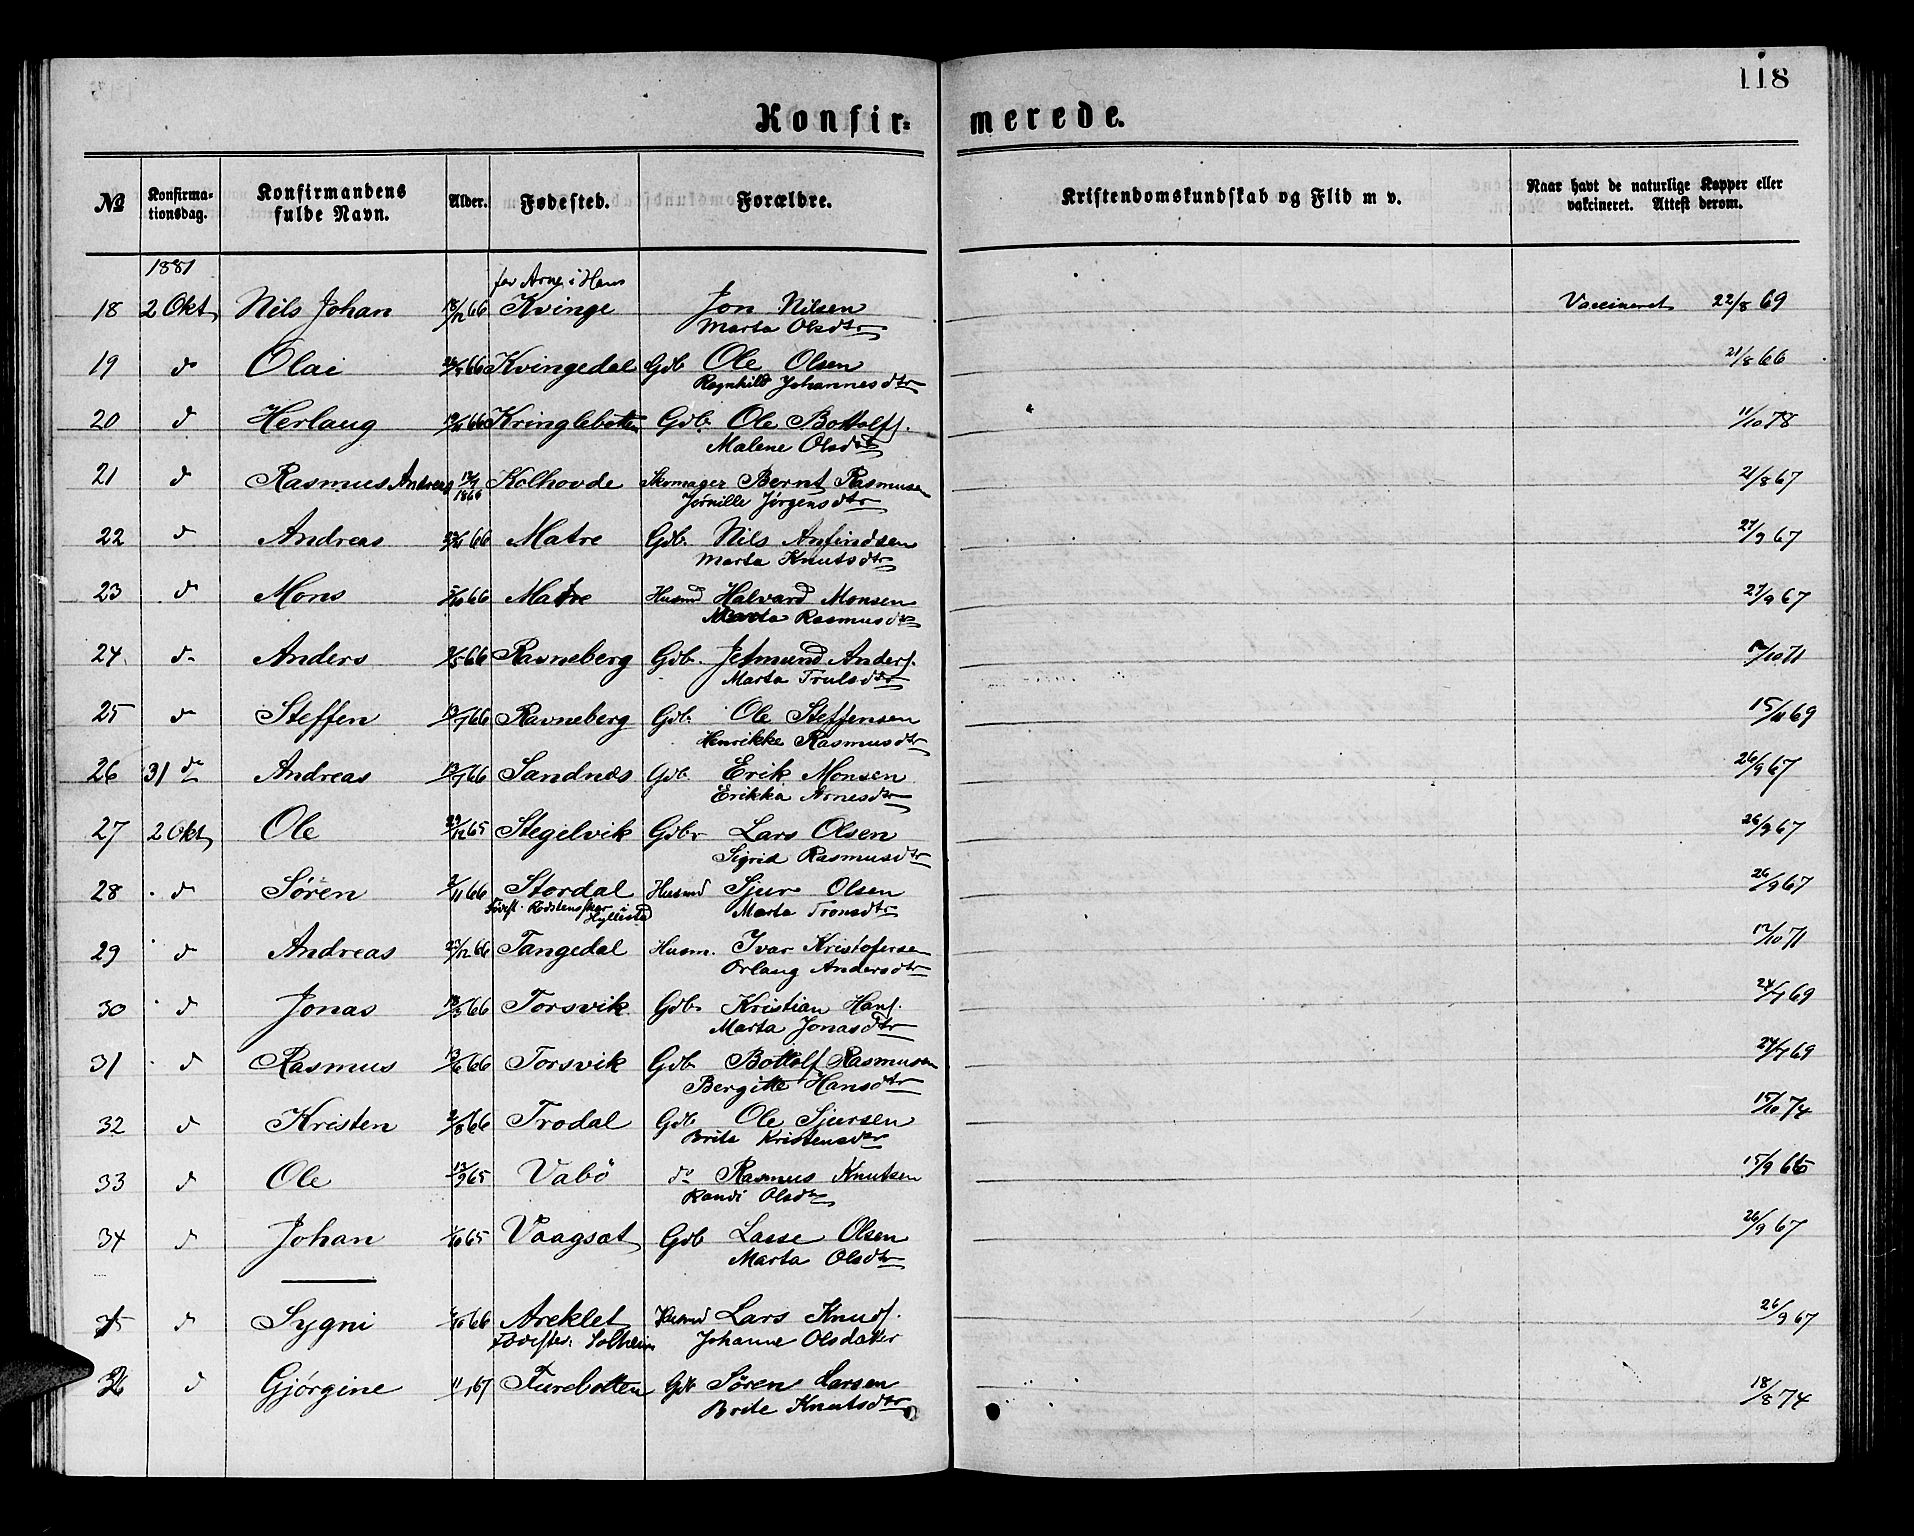 118
Konfir= merede.
№ Konfirma-tionsdag. Konfirmandens fulde Navn. Alder. Fødested. Forældre. Kristendomskundskab og Flid m v. Naar havt de naturlige Kopper eller vakcineret. Attest derom.
1881
18 2 Okt Nils Johan 18/12 66 Kvinge Jon Nilsen Vaccineret 22/8 69
Marta Olsdtr
19 do Olai 66 Kvingedal Gdb Ole Olsen 21/8 66
Ragnhild Johannesdtr
20 do Herlaug 66 Kringlebotten Gdb. Ole Bottolfs. 11/10 78
Malene Olsdtr
21 do Rasmus Andreas 1866 Kolhovde Skomager Bernt Rasmusen 21/8 67
Jørgensdtr
22 do Andreas 66 Matre Gdb. Nils Anfindsen 27/9 67
Marta Knutsdtr
23 do Mons 66 Matre Husmd Halvard Monsen 27/9 67
Marta Rasmusdtr
24. do Anders 66 Ravneberg Gdb. Jetmund Anders. /10 71
Marta Trulsdtr
25 do Steffen 66 Ravneberg Gdb. Ole Steffensen 69
Henrikke Rasmusdtr
26 31 do Andreas 66 Sandnes Gdb. Erik Monsen 26/9 67
Erikka Arnesdtr
27 2 Okt Ole 29/12 65 Stegelvik Gdbr Lars Olsen 26/9 67
Sigrid Rasmusdtr
28 do Sören /11 66 Stordal Husmd Sjur Olsen 26/9 67
Fødest. Rødstensskar i Hyllestad Marta Tronsdtr
29 do Andreas 25/12 66 Tangedal Husm. Ivar Kristofersen 12/10 71
Orlaug Andersdtr
30 do Jonas 66 Torsvik Gdb. Kristian Hans. 24/7 69
Marta Jonasdtr
31 do Rasmus 66 Torsvik Gdb Bottolf Rasmusen 24/7 69
Bergitte Hansdtr
32 do Kristen 2/8 66 Trodal Gdb Ole Sjursen 15/10 74
Brite Kristensdtr
33 do Ole /9 65 Vabö do Rasmus Knutsen 15/9 66
Randi Olsdtr
34 do Johan /10 65 Vaagsæt Gdb Lasse Olsen 26/9 67
Marta Olsdtr
35 do Sygni /10 66 Areklet Husmd Lars Knuds. 26/9 67
Fødested: Solheim Johanne Olsdatter
36 do Gjørgine 11/1 67 Furebotten Gdb Søren Larsen 18/8 74
Brite Knutsdtr